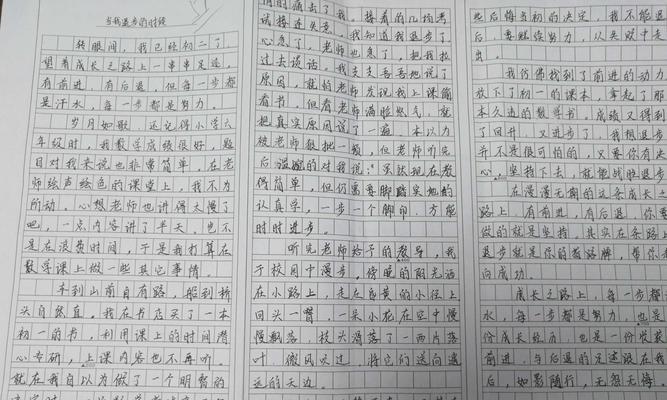 当我退步的时候
转眼间，我已经初二了
望着成长之路上一串串足迹，
有前进，有后退，但每一步都
是汗水，每一步都是努力。
岁月如歌，还记得小学六
年级时，我数学成绩很好，题
目对我来说也非常简单，在老
师绘声绘色的课堂上，我不为
所动。心想老师也讲得太慢了
吧，一点内容讲了半天，也不
是在浪费时间，于是我打算在
数学课上做一些其它事情。
车到山前自有路，船到桥
头自然直。我在书店买了一本
初一的书，利用课上的时间潜
心专研，上课内容也不再听。
就在我自以为做了一个明智的
痛击了我。接着的几次考
试接连失意，我知道我退步了
心急了，老师也急了，把我拉
过去谈话。我支支吾吾地说了
原因，就怕老师发现我上课偷
看书，但看老师满脸怒气，就
把真实原因说了一遍。本以为
被老师狠批一顿，但老师听完
后温婉的对我说："虽然现在数
学简单，但仍需要脚踏实地的
认真学，一步一个脚印，方能
时时进步。
听完老师给予的教导，我
于校园中漫步，傍晚的阳光洒
在小路上，走在昏黄的小径上
回头一瞥，一朵小花在空中慢
慢飘落，枝头滑落了一两片落
叶，微风吹过，将它们送向遥
远的天边。
些后悔当初的决定，我不能退
后，要继续努力，从失败中走
出。
我仿佛找到了前进的动力
放下了初一的课本，拿起了那
本久违的数学书。成绩又得到
了回升，又进步了，我想退步
并不是很可怕的，只要你有决
心，坚持下去，就能战胜退步
在漫漫无期的这条成长之
路上，有前进，有后退，你
做的就是坚持，其实在条路上
退步就是你的着路牌，帮你
向成功。
成长之路上，每一步都
水，每一步都是努力，也是
份成长经历，也是一份收获
前进，与后退的足迹服在我
后，如影随行，无怨无悔。